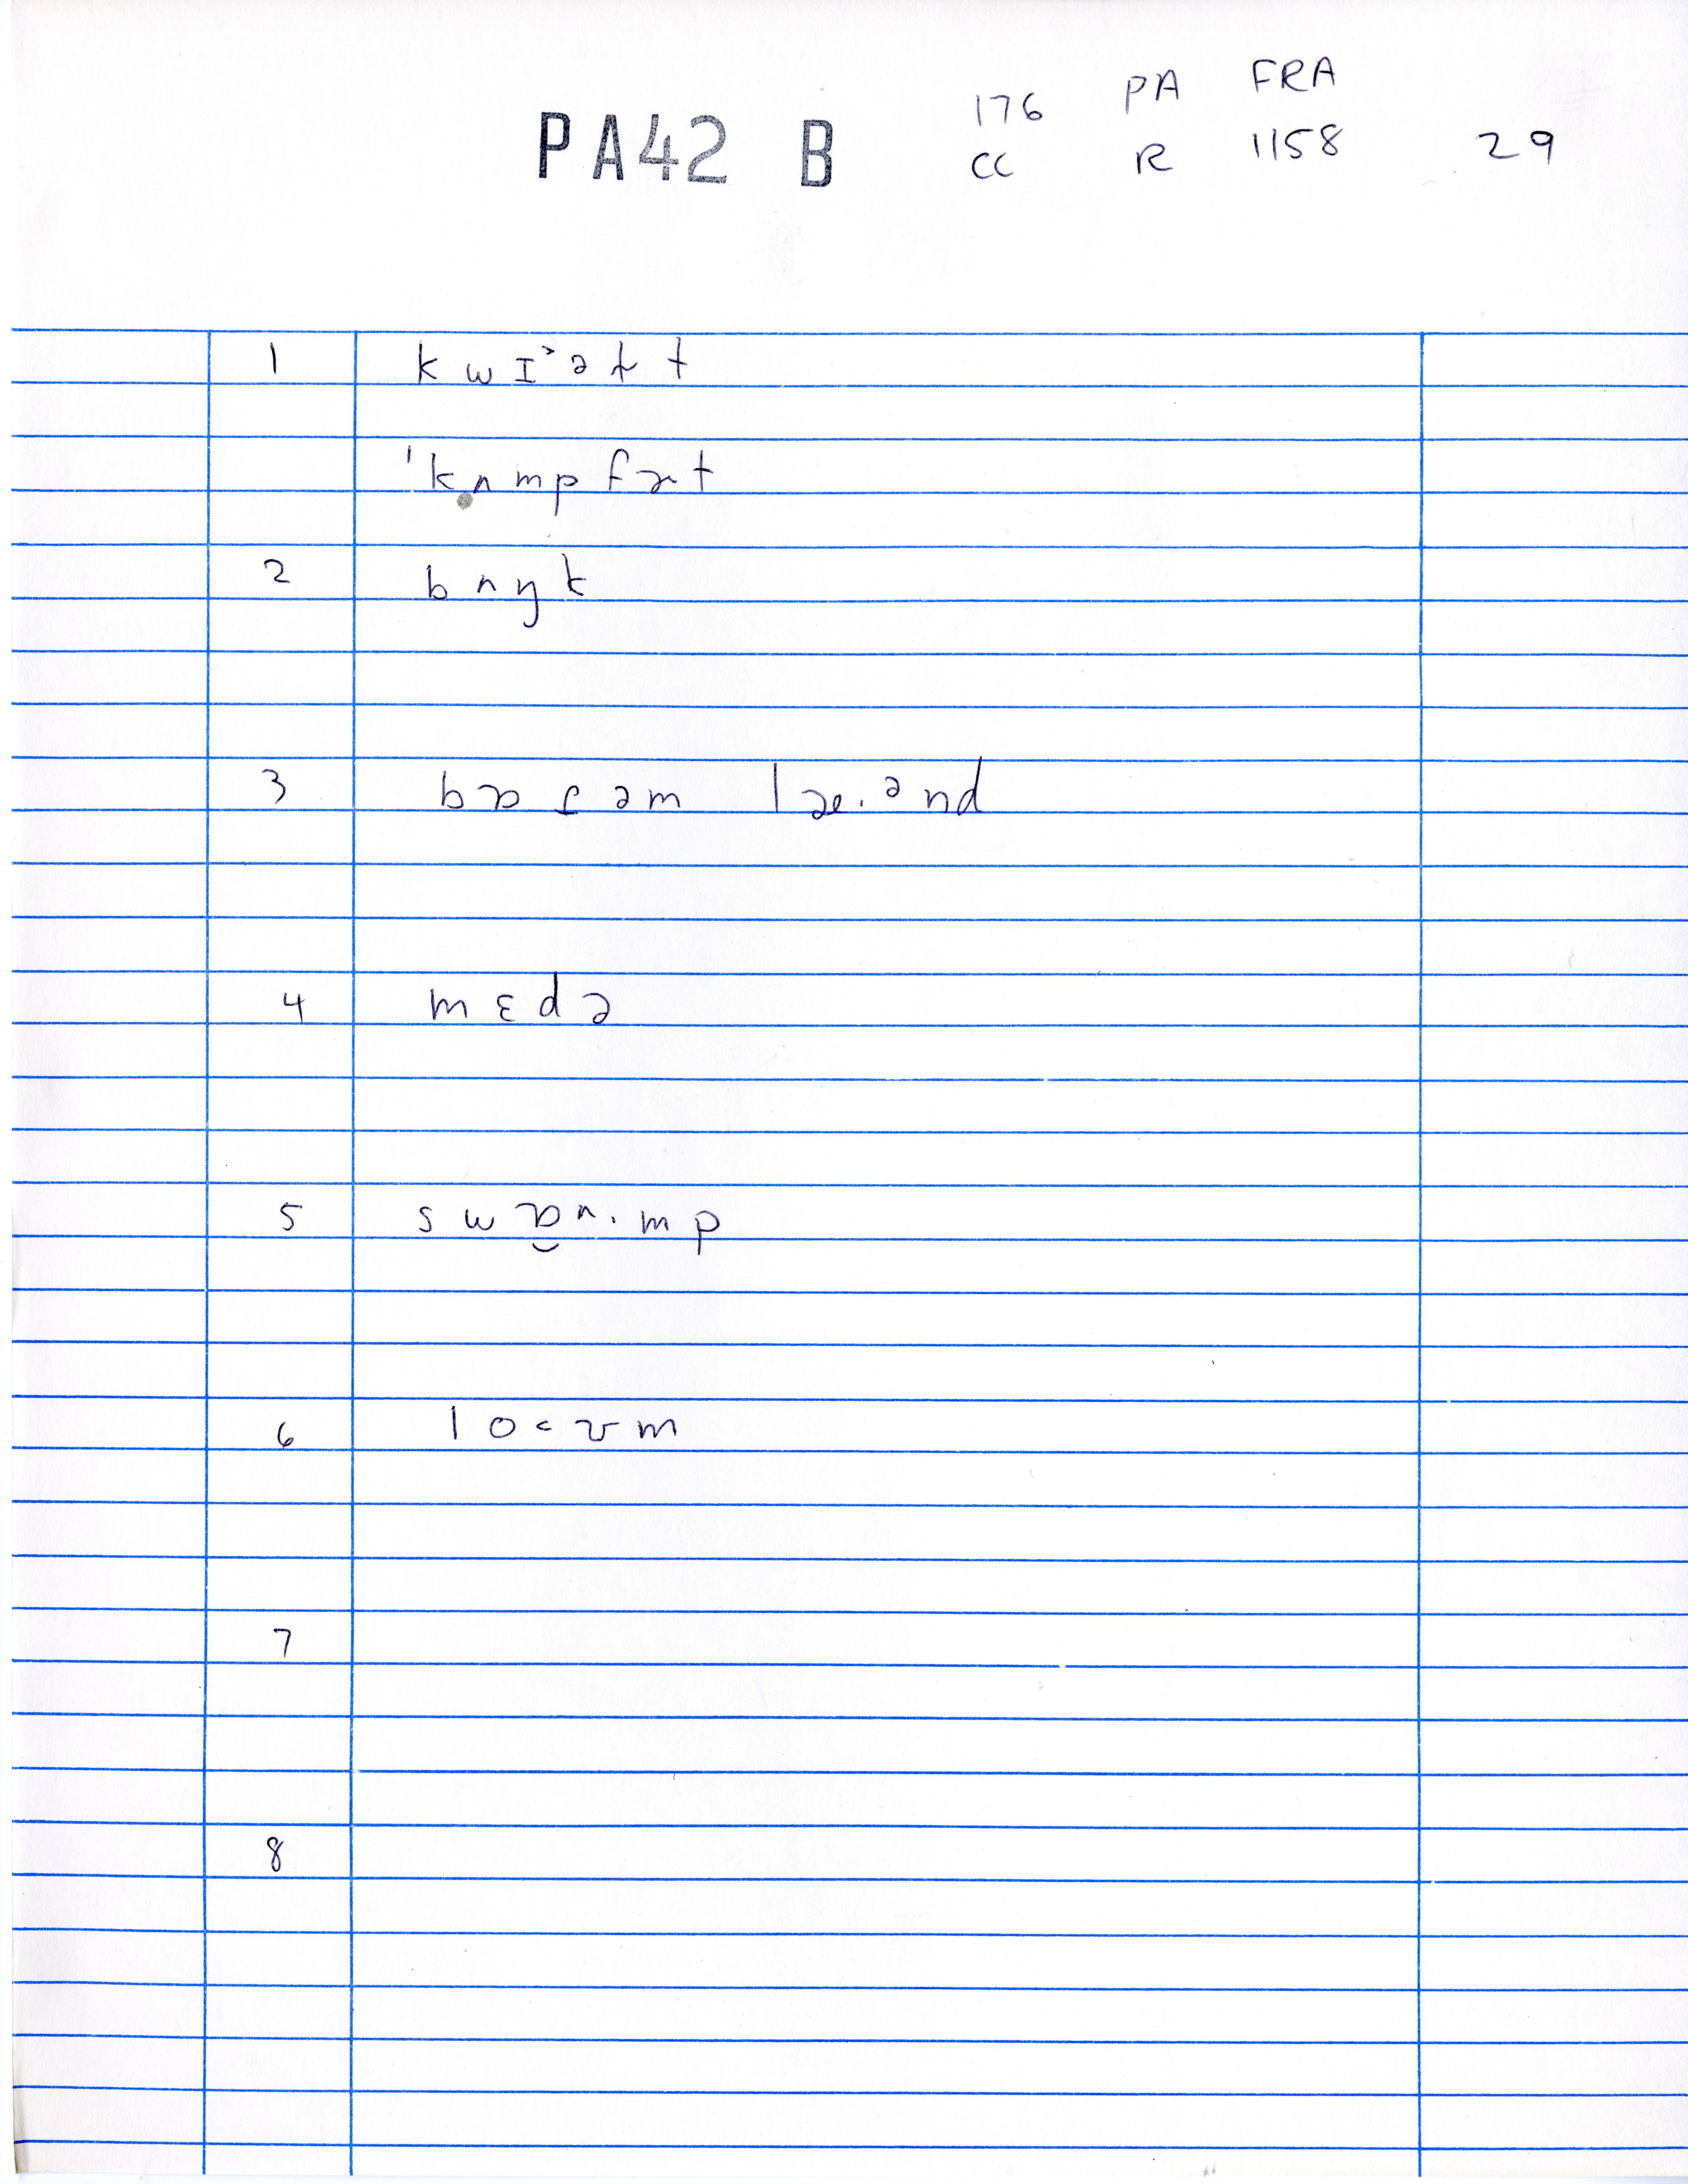 PA42 B 176 PA FRA
CC R 1158 29
1 k w ɪ ˃ ə ɫ t
ˈkʌmpfɚt
2 bʌŋk
3 bɒɾəm læ.ənd
4 mɛdə
5 swɒ̯ʌ.mp
6 lo˂ʊm
7
8